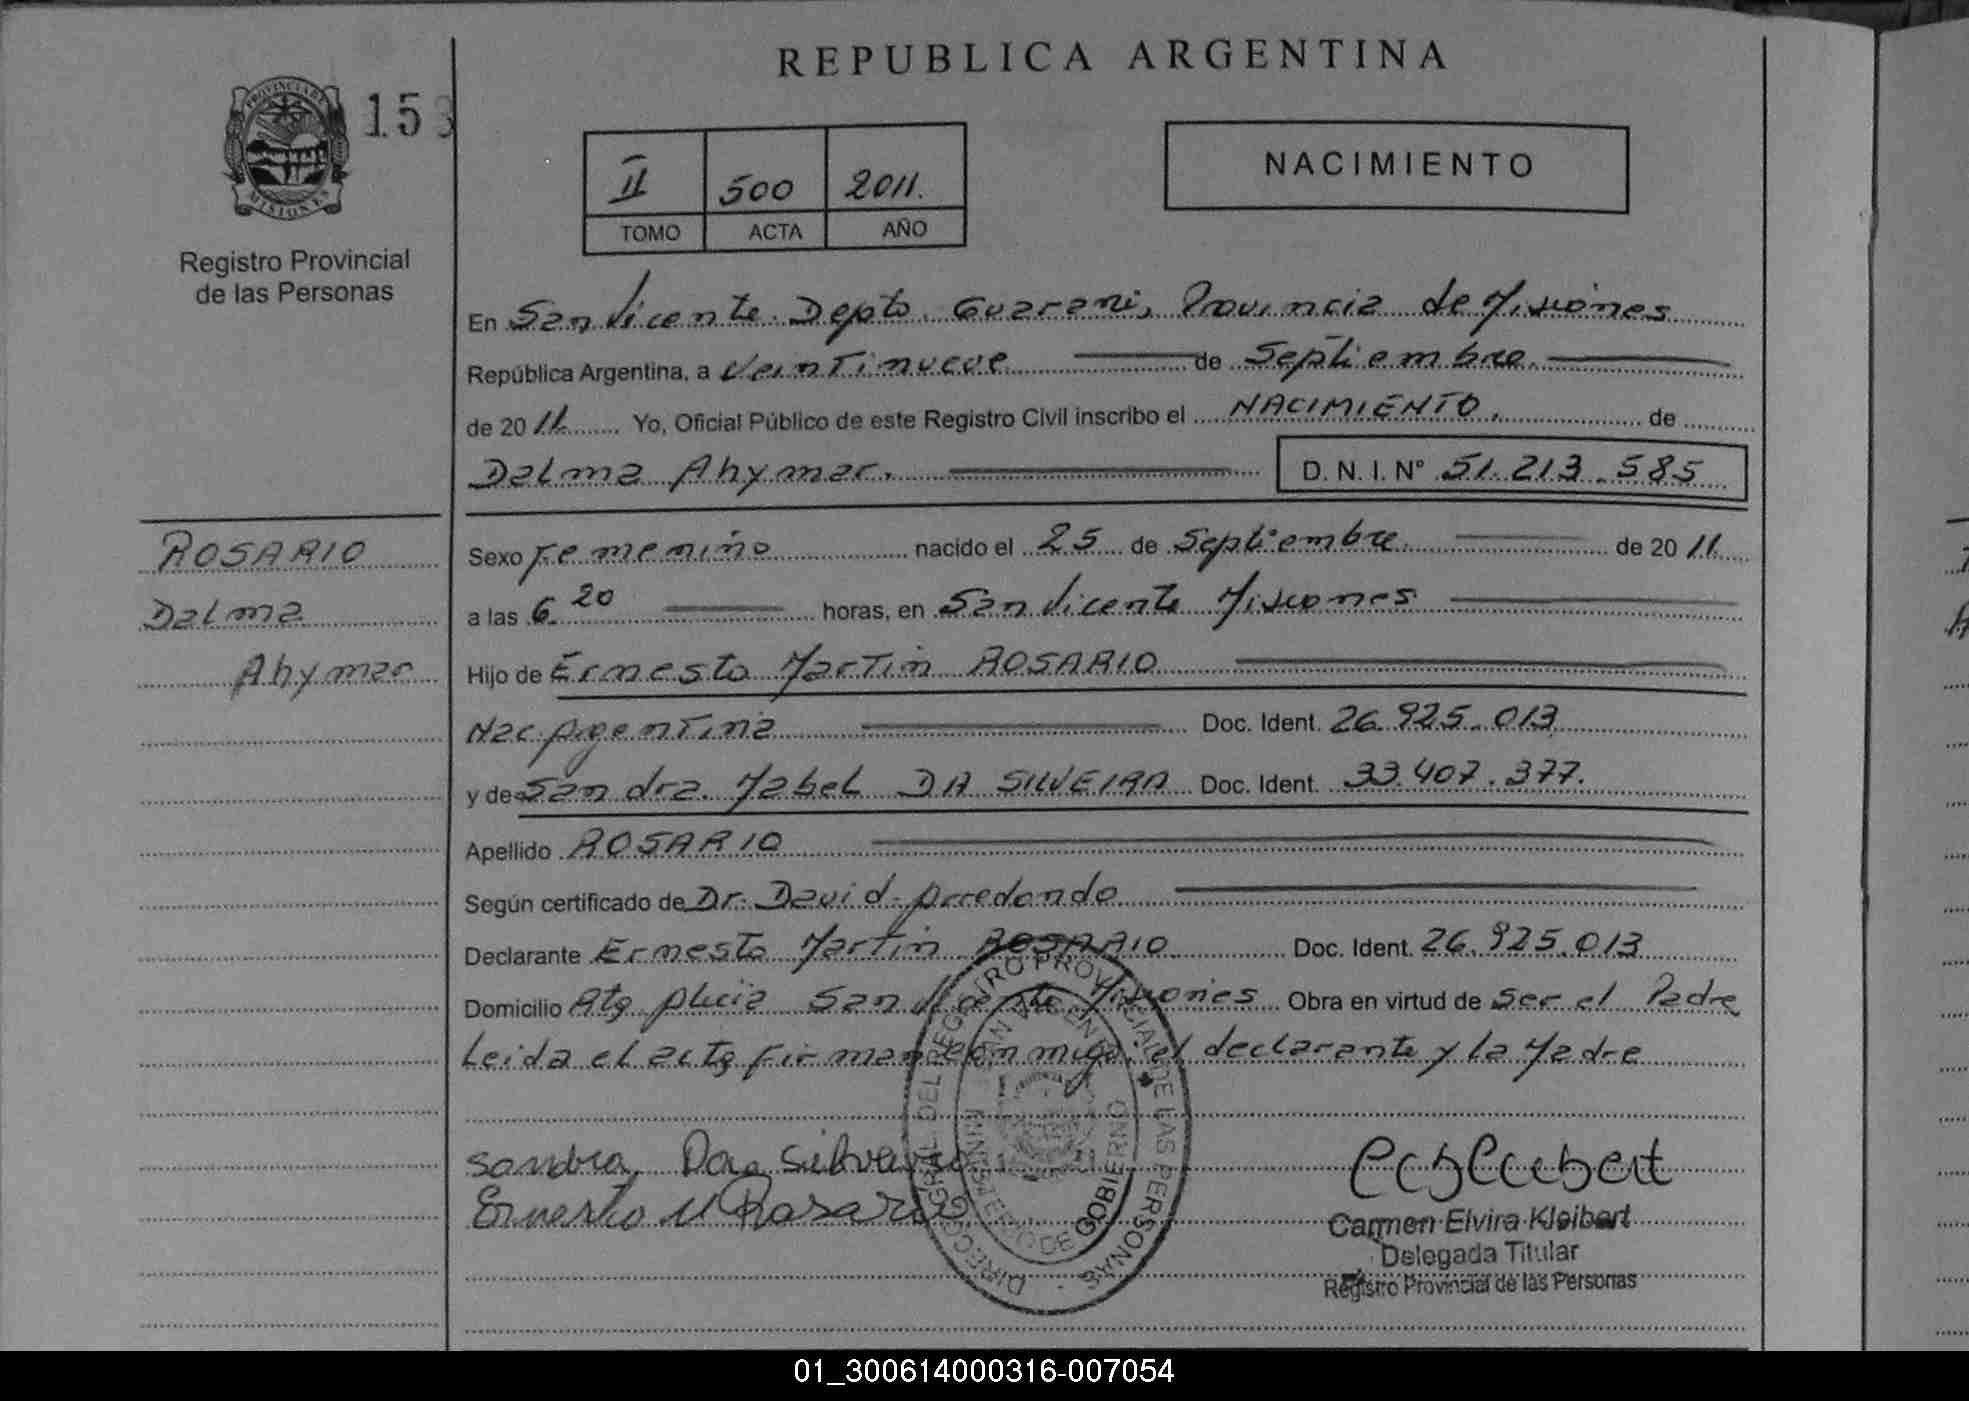 REPUBLICA ARGENTINA
PROVINCIA DE
MISIONES
15
Registro Provincial
de las Personas
II 500 2011.
TOMO ACTA AÑO
NACIMIENTO
En San Vicente. Depto. Guarani, Provincia de Misiones
República Argentina, a Veintinueve de Septiembre.
de 2011. Yo, Oficial Público de este Registro Civil inscribo el NACIMIENTO. de
Dalma Ahymar. D. N. I. N° 51.213.585
ROSARIO
Dalma
Ahymar
Sexo Femenino nacido el 25 de Septiembre de 2011.
a las 6.20 horas, en San Vicente Misiones
Hijo de Ernesto Martin ROSARIO
Nac Argentina Doc. Ident. 26.925.013
y de Sandra Mabel DA SILVEIRA Doc. Ident. 33.407.377.
Apellido ROSARIO
Según certificado de Dr. David Arredondo
Declarante Ernesto Martin ROSARIO Doc. Ident. 26.925.013
Domicilio San Vicente Misiones Obra en virtud de Ser el Padre
Leida el acta firman conmigo, el declarante y la Madre
DIRECC. GRAL. DEL REGISTRO PROVINCIAL DE LAS PERSONAS
SAN VICENTE
MINISTERIO DE GOBIERNO
Sandra Da Silveira
Ernesto M Rosario
Carmen Elvira Kleibert
Delegada Titular
Registro Provincial de las Personas
01_300614000316-007054